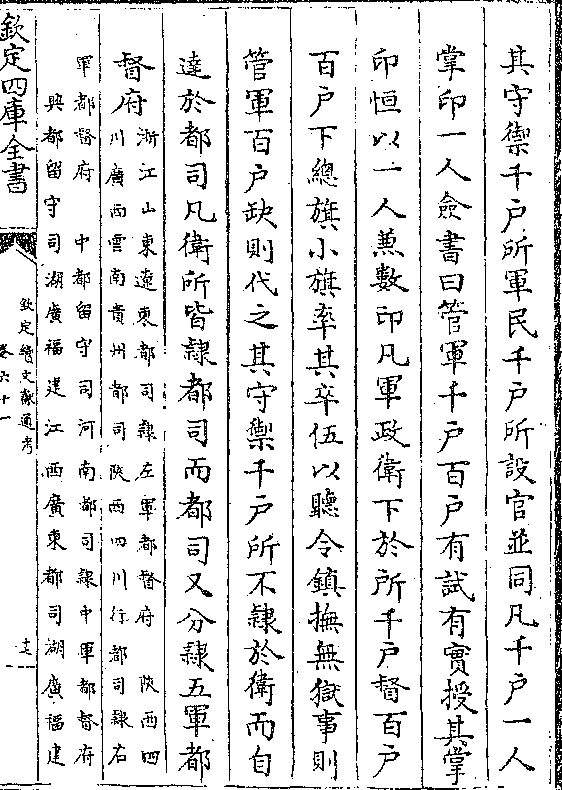 其守禦千戶所軍民千戶所設官並同凡千戶一人
掌印一人僉書曰管軍千戶百戶有試有實授其掌
印恒以一人兼數印凡軍政衛下於所千戶督百戶
百戶下總旗小旗率其卒伍以聽令鎮撫無獄事則
管軍百戶缺則代之其守禦千戶所不隸於衛而自
達於都司凡衛所皆隸都司而都司又分隸五軍都
督府浙江山東遼東都司隸左軍都督府　陝西四
川廣西雲南貴州都司陝西四川行都司隸右
軍都督府　中都留守司河南都司隸中軍都督府
興都留守司湖廣福建江西廣東都司湖廣福建
欽定四庫全書
欽定續文獻通考
卷六十一